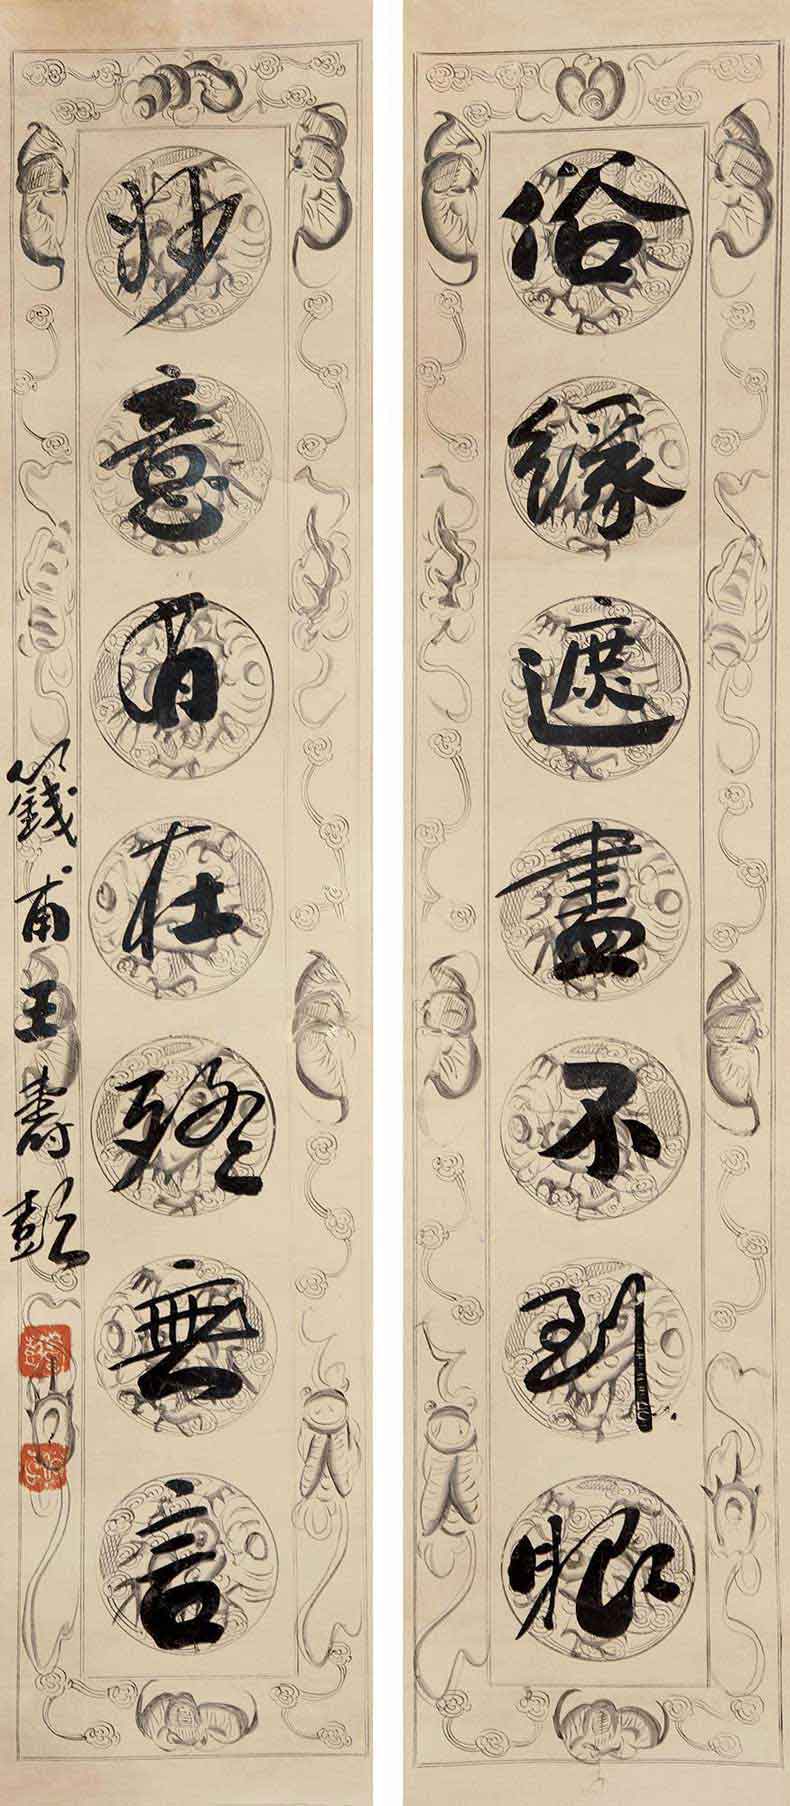 俗緣遮盡不到眼
妙意有在終無言
籛甫王壽彭